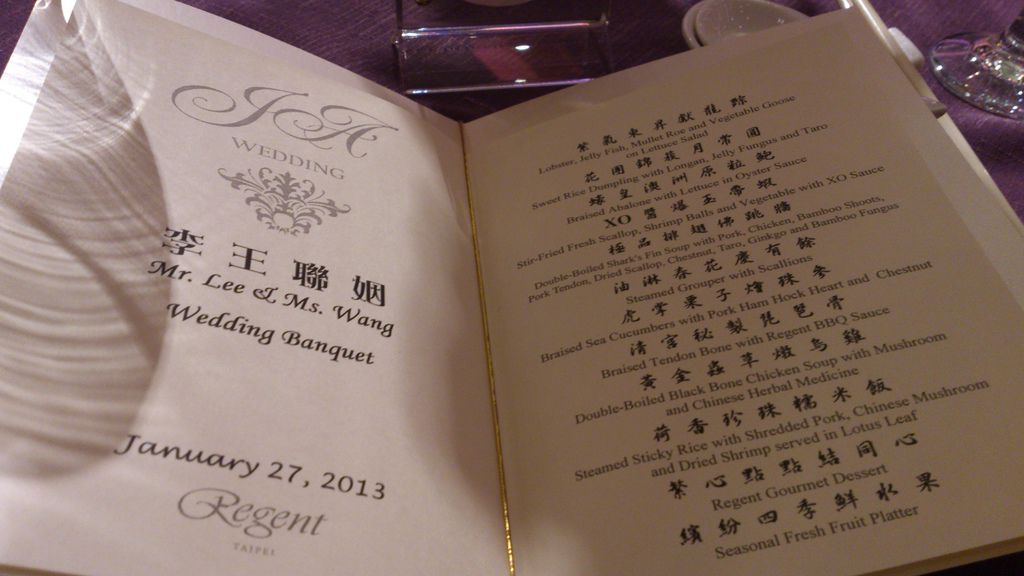 JA
WEDDING
李王聯姻
Mr. Lee & Ms. Wang
Wedding Banquet
January 27, 2013
Regent
TAIPEI
紫氣東昇獻龍踪
Lobster, Jelly Fish, Mullet Roe and Vegetable Goose
on Lettuce Salad
花團錦簇月常圓
Sweet Rice Dumpling with Longan, Jelly Fungus and Taro
臻皇澳洲原粒鮑
Braised Abalone with Lettuce in Oyster Sauce
XO醬爆玉帶蝦
Stir-Fried Fresh Scallop, Shrimp Balls and Vegetable with XO Sauce
極品排翅佛跳牆
Double-Boiled Shark's Fin Soup with Pork, Chicken, Bamboo Shoots,
Pork Tendon, Dried Scallop, Chestnut, Taro, Ginkgo and Bamboo Fungus
油淋春花慶有餘
Steamed Grouper with Scallions
虎掌栗子燴珠參
Braised Sea Cucumbers with Pork Ham Hock Heart and Chestnut
清宮秘製琵琶骨
Braised Tendon Bone with Regent BBQ Sauce
黃金蟲草燉烏雞
Double-Boiled Black Bone Chicken Soup with Mushroom
and Chinese Herbal Medicine
荷香珍珠糯米飯
Steamed Sticky Rice with Shredded Pork, Chinese Mushroom
and Dried Shrimp served in Lotus Leaf
繫心點點結同心
Regent Gourmet Dessert
繽紛四季鮮水果
Seasonal Fresh Fruit Platter